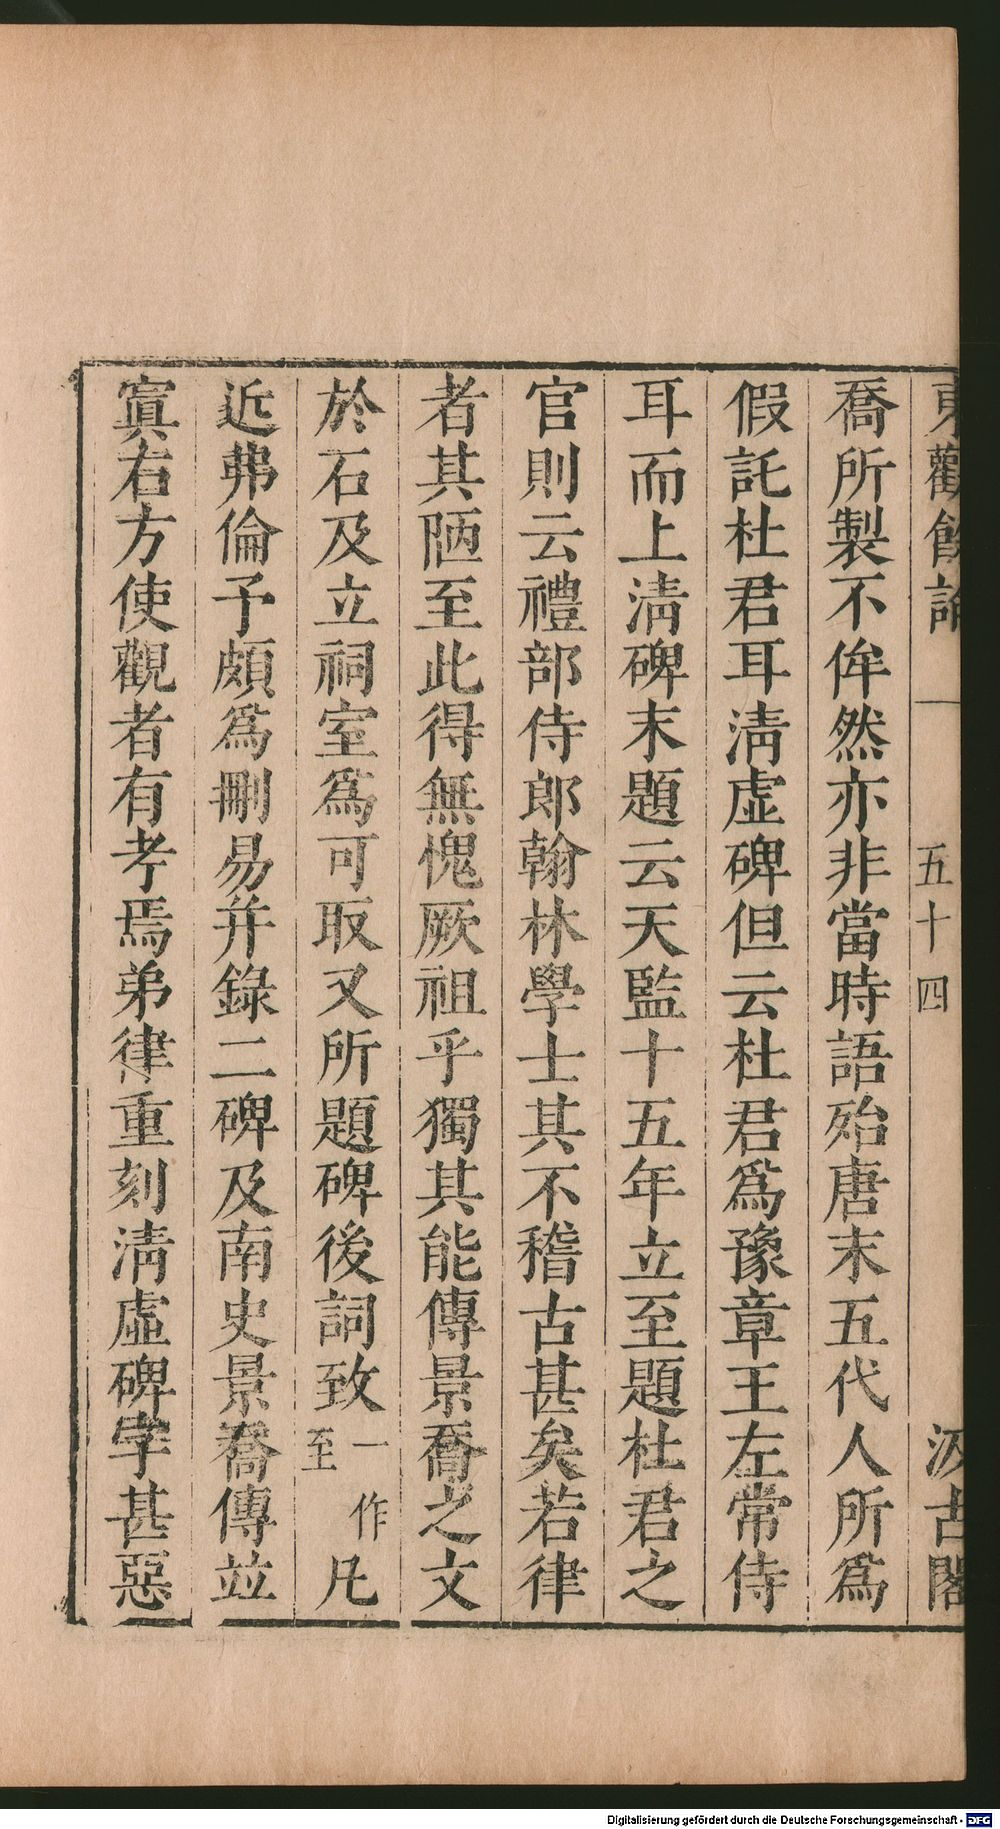 東觀餘論 一 五十四 汲古閣
喬所製不侔然亦非當時語殆唐末五代人所爲
假託杜君耳淸虛碑但云杜君爲豫章王左常侍
耳而上淸碑末題云天監十五年立至題杜君之
官則云禮部侍郎翰林學士其不稽古甚矣若律
者其陋至此得無愧厥祖乎獨其能傳景喬之文
於石及立祠室爲可取又所題碑後詞致一作至凡
近弗倫予頗爲刪易并錄二碑及南史景喬傳並
寘右方使觀者有考焉弟律重刻淸虛碑字甚惡
Digitalisierung gefördert durch die Deutsche Forschungsgemeinschaft - DFG